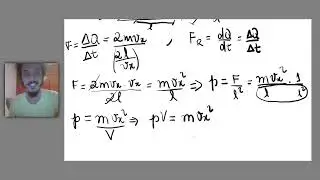 F = ΔQ/Δt = 2mvx/(2l/vx) , F_R = dQ/dt = ΔQ/Δt
F = 2mvx · vx/2l = mvx²/l ⇒ p = F/l² = mvx²/l · 1/l²
p = mvx²/V ⇒ pV = mvx²